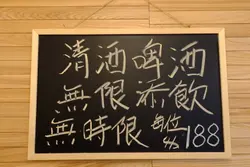 清酒啤酒
無限添飲
無時限 每位 $188